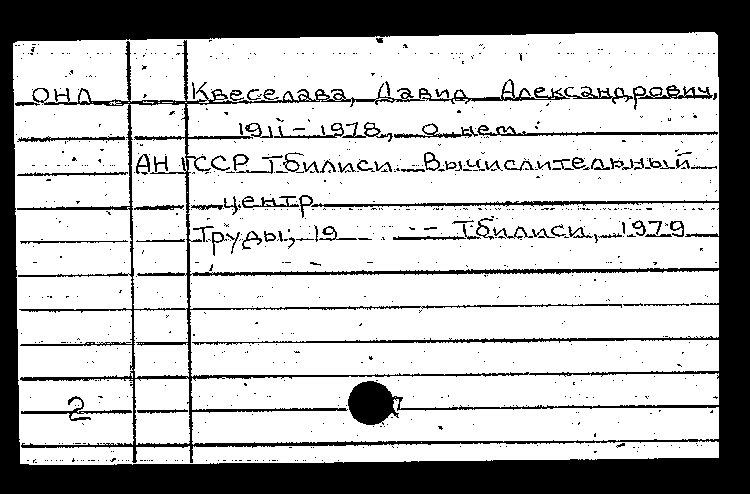 ОНЛ Квеселава, Давид Александрович,
1911-1978, о нем.
АН ГССР. Тбилиси. Вычислительный
центр
Труды; 19 -- Тбилиси, 1979
2